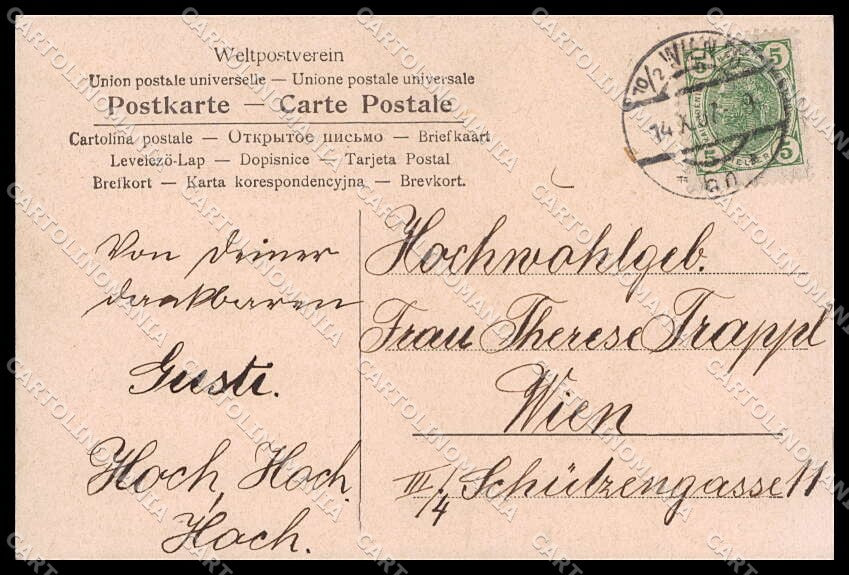 Weltpostverein
Union postale universelle — Unione postale universale
Postkarte — Carte Postale
Cartolina postale — Открытое письмо — Briefkaart
Levelezö-Lap — Dopisnice — Tarjeta Postal
Brefkort — Karta korespondencyjna — Brevkort.
10/2 WIEN
14 X 07
5 5
5 5
Von Deiner
dankbaren
Gusti.
Hoch, Hoch.
Hoch.
Hochwohlgeb.
Frau Therese Trappl
Wien
III/4 Schützengasse 11
CARTOLINOMANIA